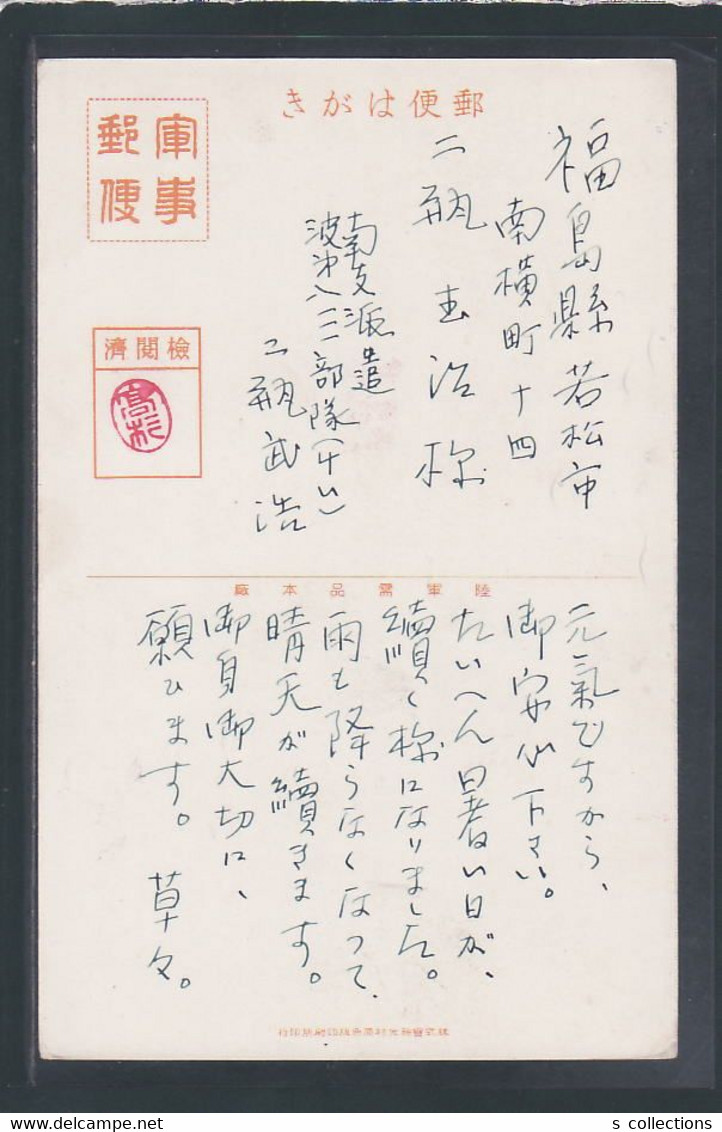 郵便はがき
軍事
郵便
檢閱濟
高杉
福島縣若松市
南横町十四
二瓶
治様
南支派遣
波第八一一部隊(千い)
二瓶武浩
陸軍需品本廠
元氣ですから、
御安心下さい。
たいへん暑い日が、
續く様になりました。
雨も降らなくなつて、
晴天が續きます。
御身御大切に、
願ひます。 草々。
s collections